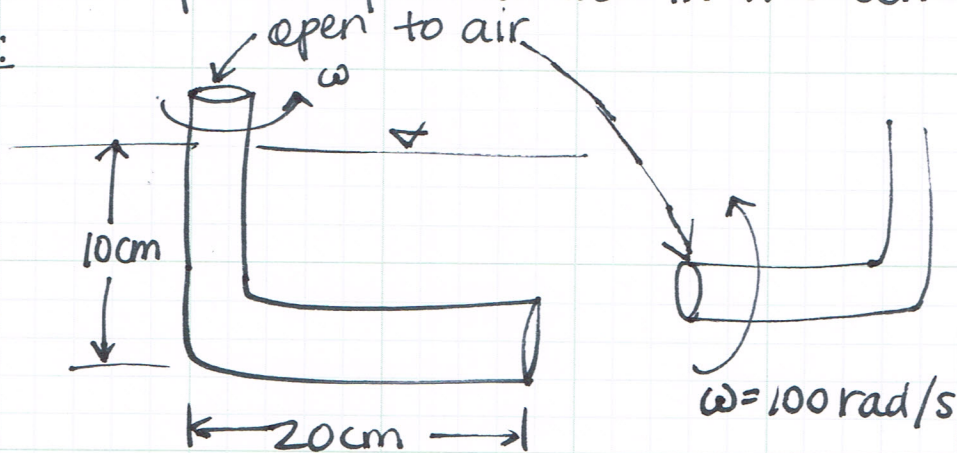 open to air
ω
10cm
20cm
ω=100 rad/s